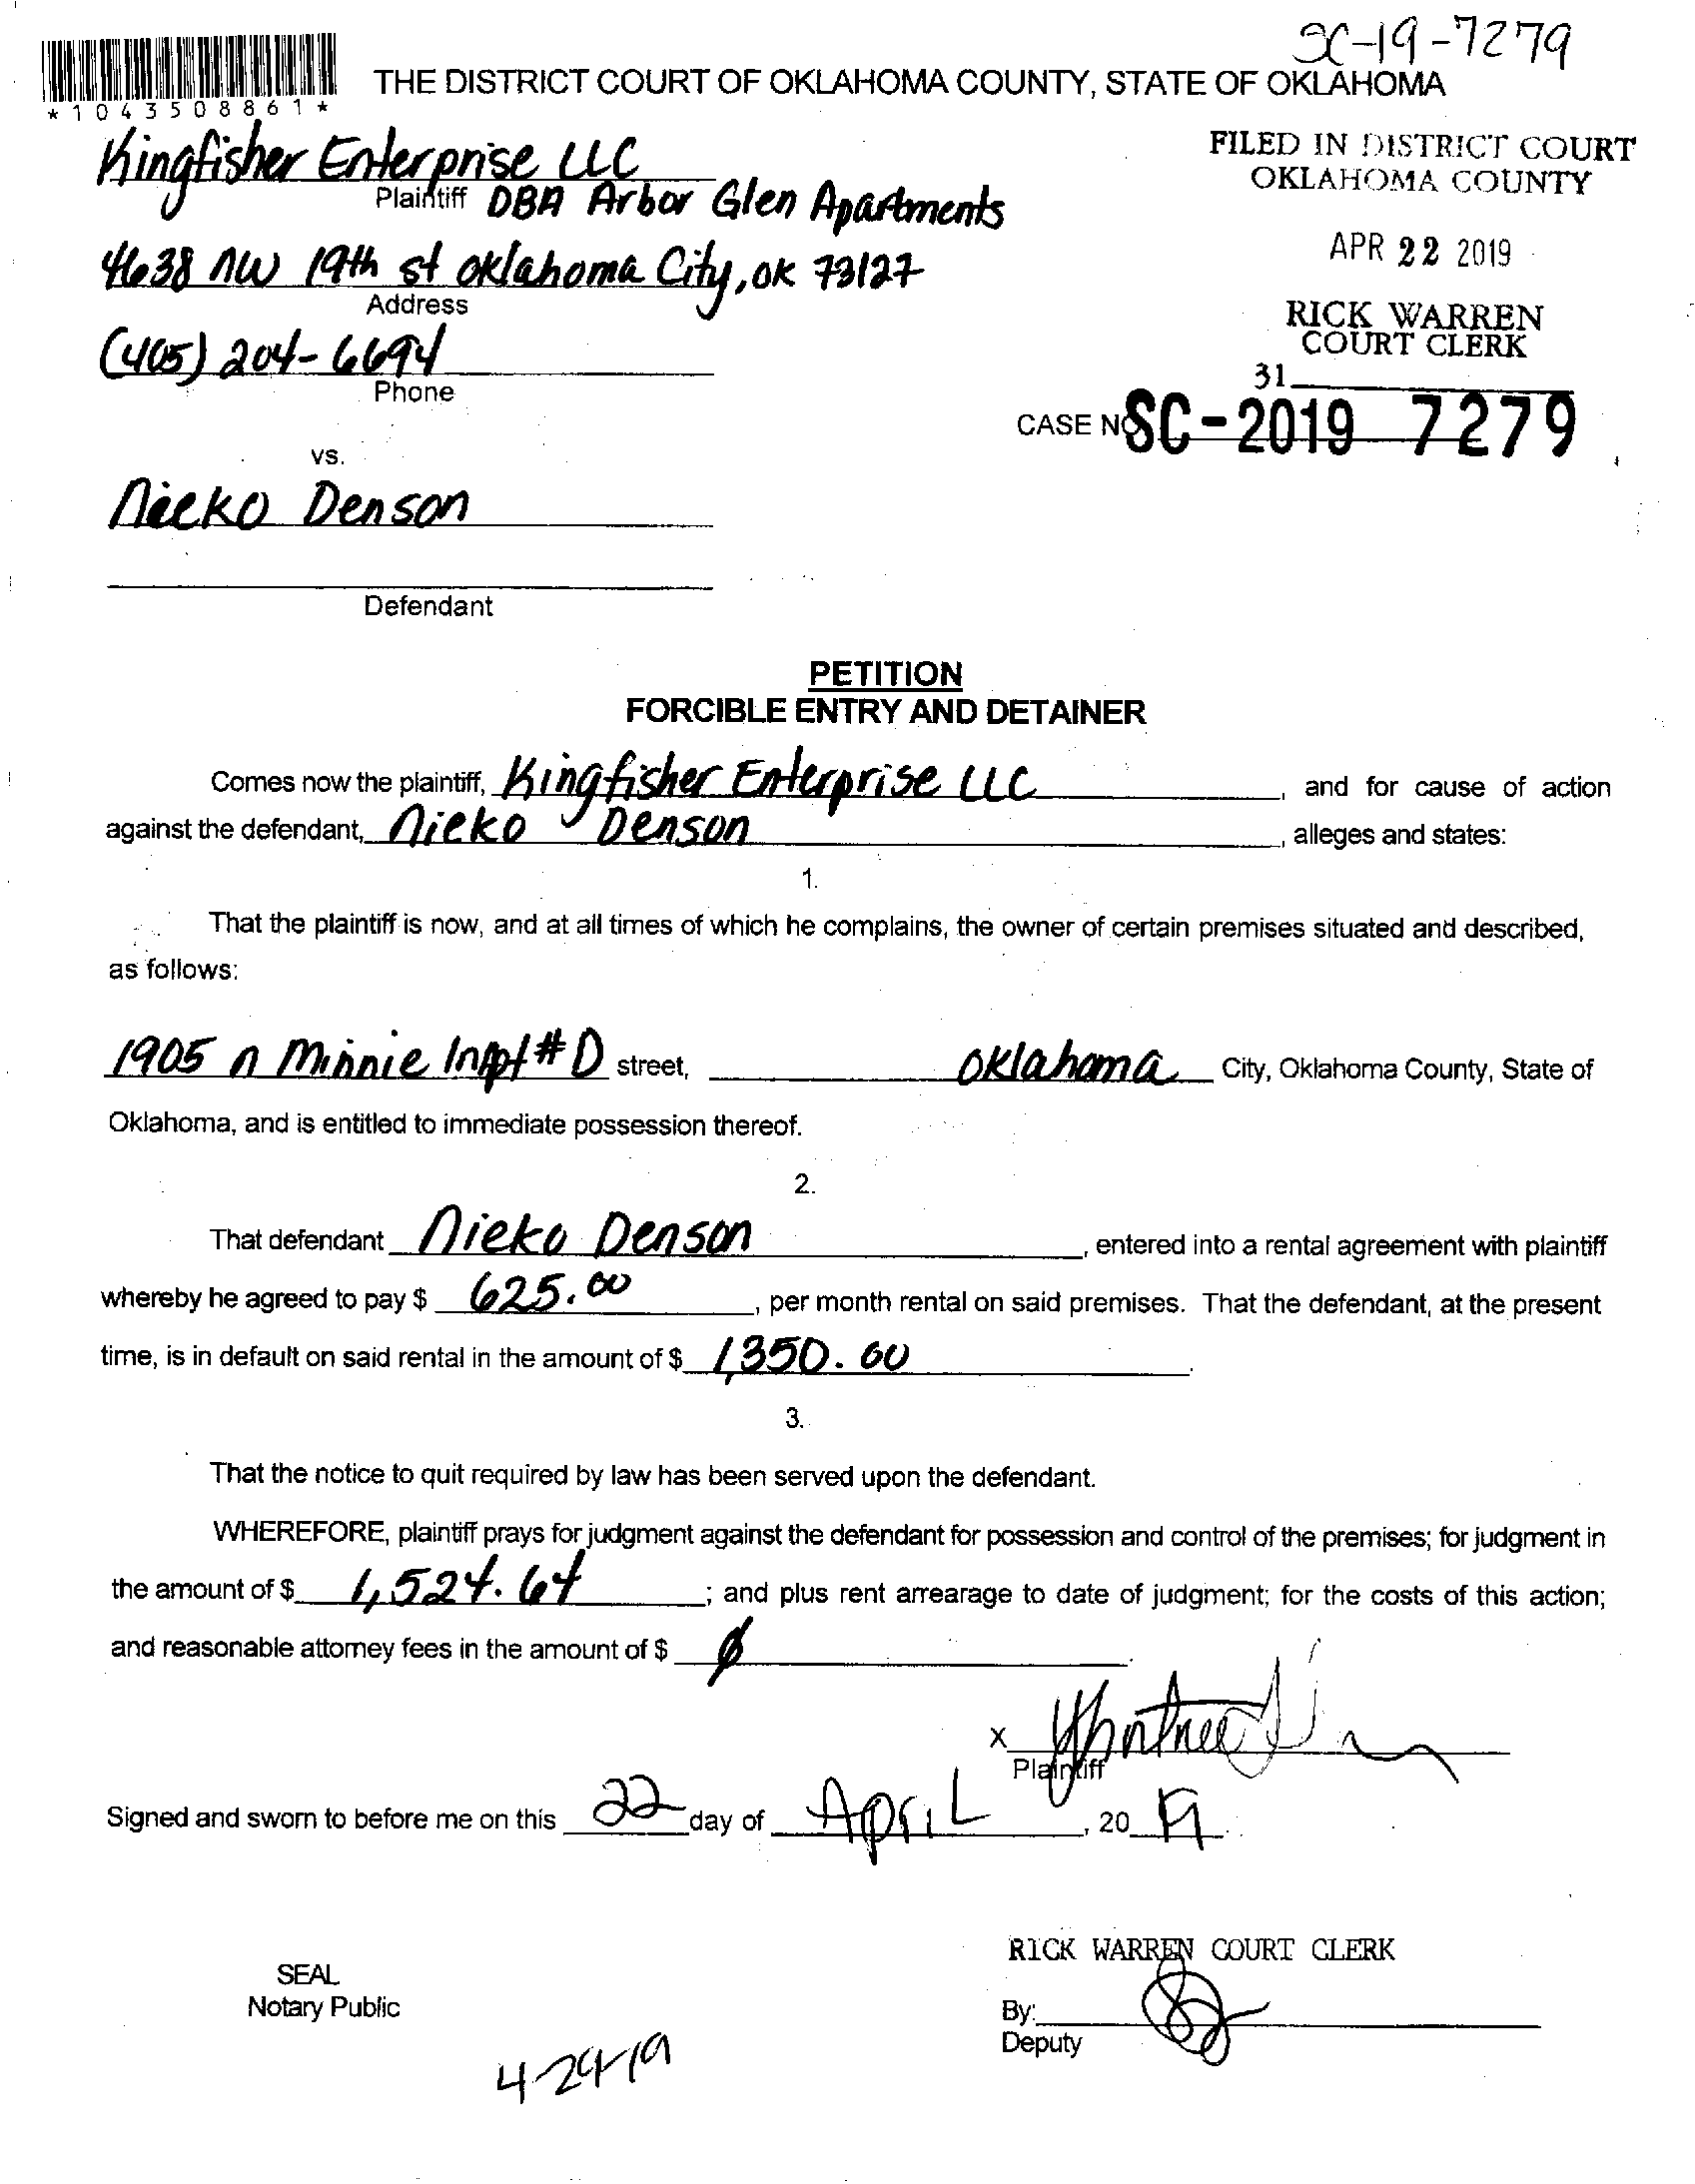 SC-19-7279
THE DISTRICT COURT OF OKLAHOMA COUNTY, STATE OF OKLAHOMA
*1043508861*
Kingfisher Enterprise LLC
Plaintiff DBA Arbor Glen Apartments
4638 NW 19th st Oklahoma City, OK 73127
Address
(405) 204-6694
Phone
FILED IN DISTRICT COURT
OKLAHOMA COUNTY
APR 22 2019
RICK WARREN
COURT CLERK
31
CASE NO SC-2019 7279
vs.
Nieko Denson
Defendant
PETITION
FORCIBLE ENTRY AND DETAINER
Comes now the plaintiff, Kingfisher Enterprise LLC, and for cause of action
against the defendant, Nieko Denson, alleges and states:
1.
That the plaintiff is now, and at all times of which he complains, the owner of certain premises situated and described,
as follows:
1905 n Minnie ln Apt # D street, Oklahoma City, Oklahoma County, State of
Oklahoma, and is entitled to immediate possession thereof.
2.
That defendant Nieko Denson, entered into a rental agreement with plaintiff
whereby he agreed to pay $ 625.00, per month rental on said premises. That the defendant, at the present
time, is in default on said rental in the amount of $ 1,350.00.
3.
That the notice to quit required by law has been served upon the defendant.
WHEREFORE, plaintiff prays for judgment against the defendant for possession and control of the premises; for judgment in
the amount of $ 1,524.64; and plus rent arrearage to date of judgment; for the costs of this action;
and reasonable attorney fees in the amount of $ ∅.
X
Plaintiff
Signed and sworn to before me on this 22 day of April, 20 19.
RICK WARREN COURT CLERK
SEAL
Notary Public
By:
Deputy
4-24-19